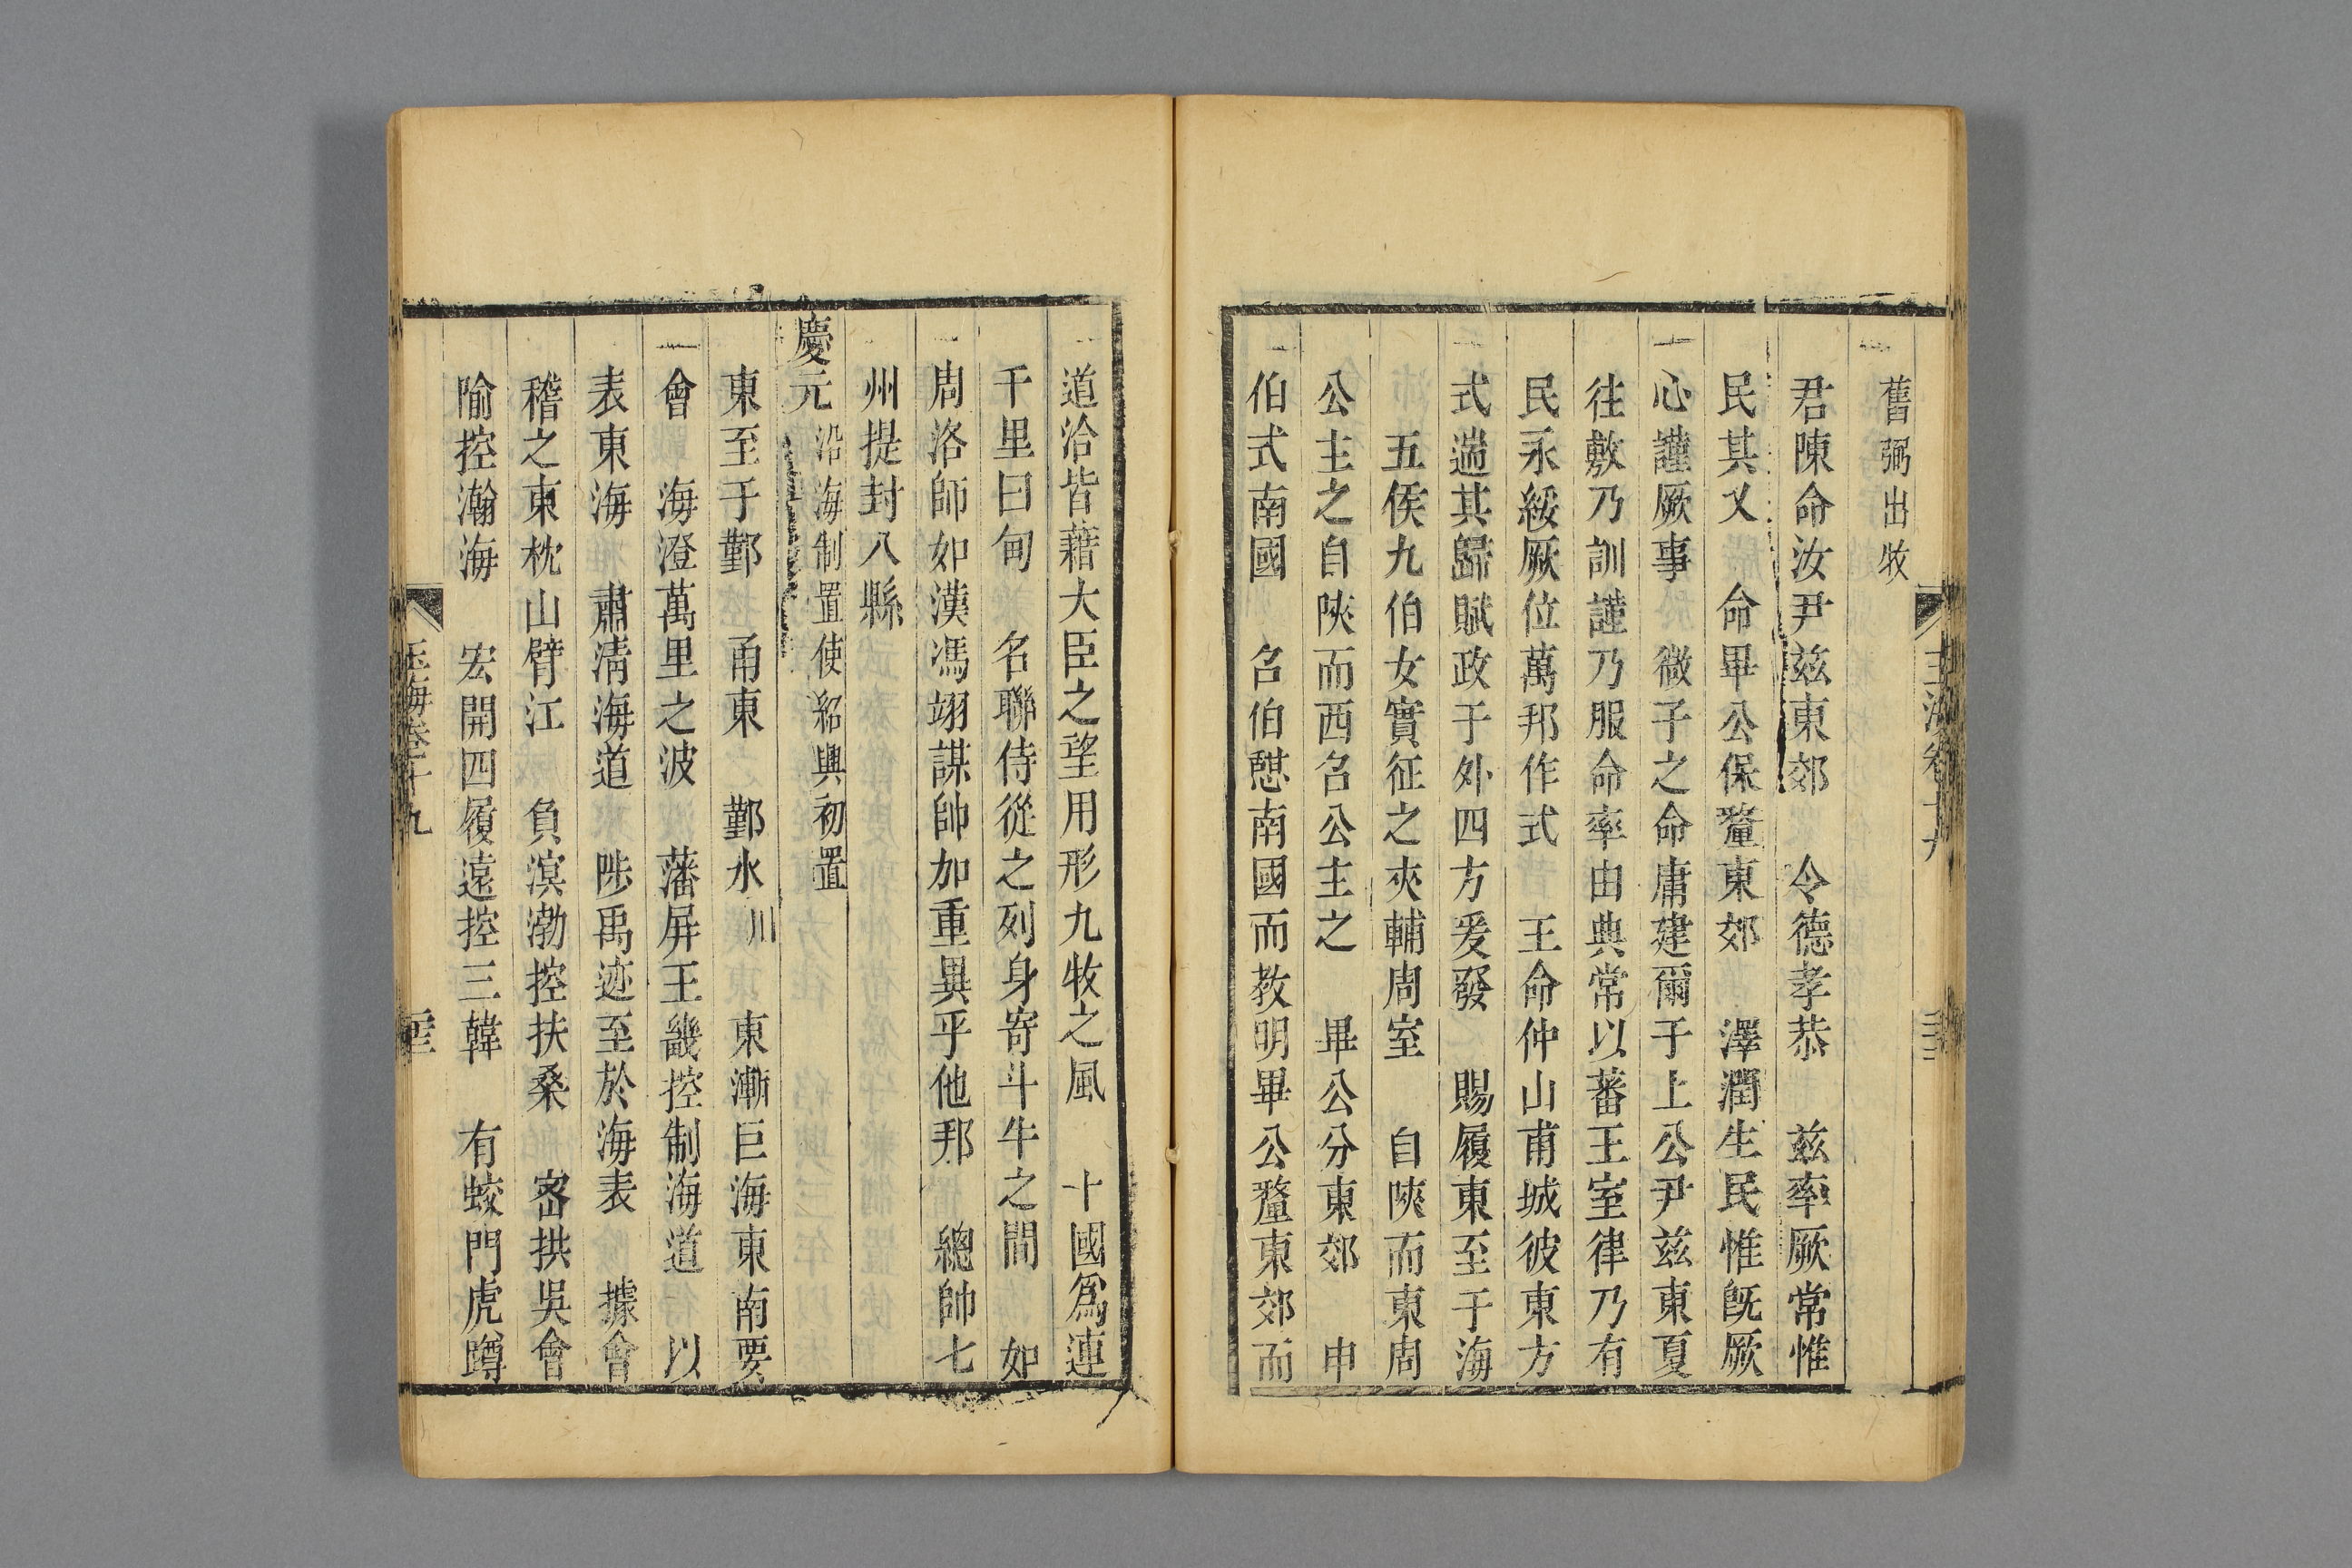 舊弼出牧
君陳命汝尹茲東郊　令德孝恭　茲率厥常惟
民其乂　命畢公保釐東郊　澤潤生民惟旣厥
心謹厥事　微子之命庸建爾于上公尹茲東夏
往敷乃訓謹乃服命率由典常以蕃王室律乃有
民永綏厥位萬邦作式　王命仲山甫城彼東方
式遄其歸賦政于外四方爰發　賜履東至于海
五侯九伯女實征之夾輔周室　自陝而東周
公主之自陝而西召公主之　畢公分東郊　申
伯式南國　召伯憩南國而教明畢公釐東郊而
道洽皆藉大臣之望用形九牧之風　十國爲連
千里曰甸　名聯侍從之列身寄斗牛之間　如
周洛師如漢馮翊謀帥加重異乎他邦　總帥七
州提封八縣
慶元　沿海制置使紹興初置
東至于鄞　甬東　鄞水川　東漸巨海東南要
會　海澄萬里之波　藩屏王畿控制海道　以
表東海　肅淸海道　陟禹迹至於海表　據會
稽之東枕山臂江　負溟渤控扶桑　密拱吳會
隃控瀚海　宏開四履遠控三韓　有蛟門虎蹲
玉海卷十九